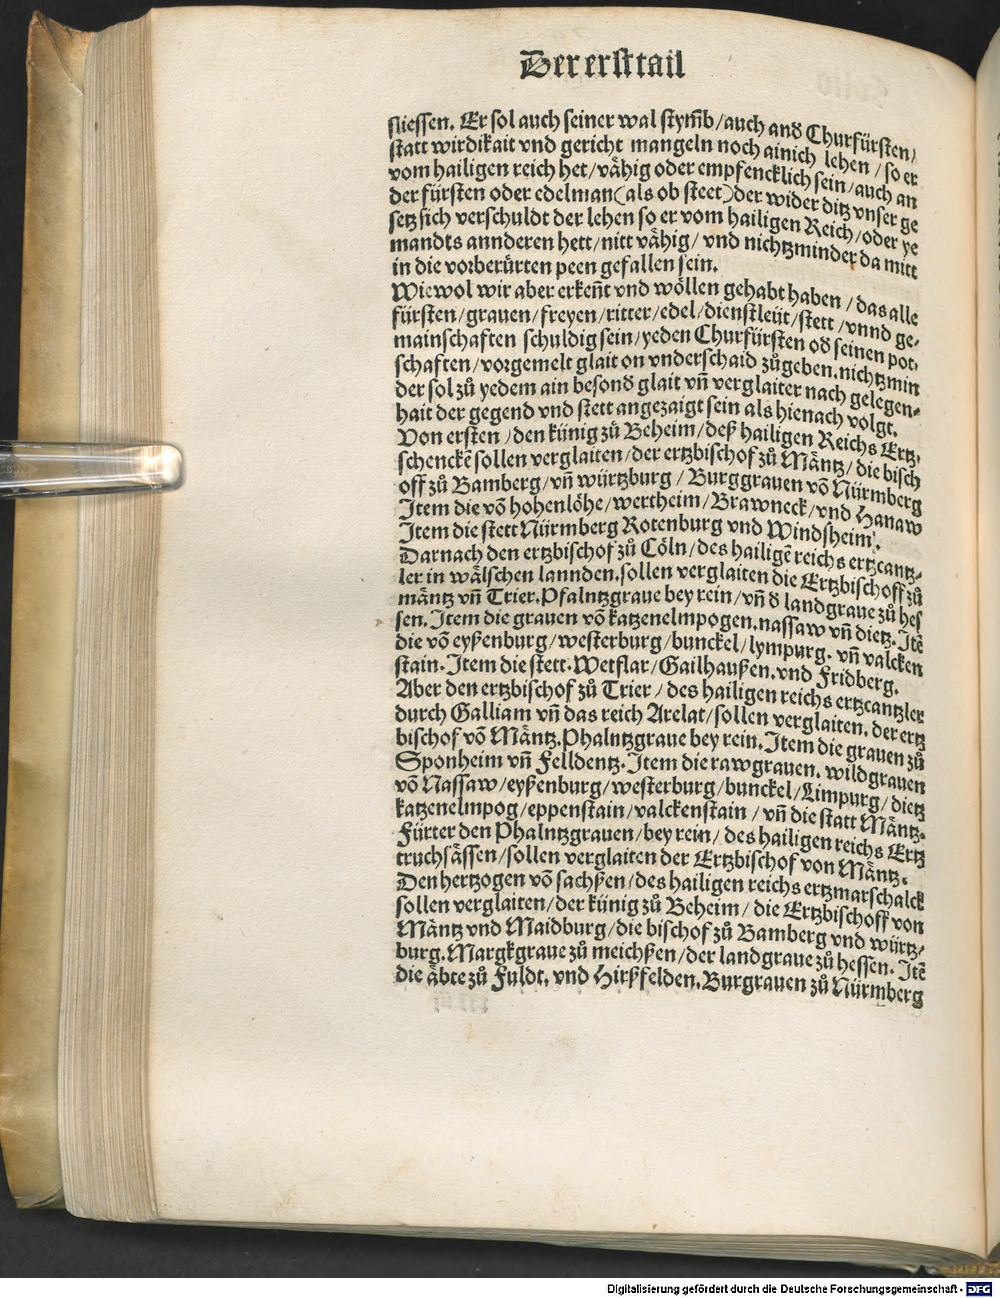 Der erst tail
fliessen. Er sol auch seiner wal stym̃b/auch and̃ Churfürsten/
statt wirdikait vnd gericht mangeln noch ainich lehen/so er
vom hailigen reich het/våhig oder empfencklich sein/auch an
der fürsten oder edelman(als ob steet)der wider ditz vnser ge
setz sich verschuldt der lehen so er vom hailigen Reich/oder ye
mandts annderen hett/nitt våhig/ vnd nichtzminder da mitt
in die vorberürten peen gefallen sein.
Wiewol wir aber erkeñt vnd wöllen gehabt haben/das alle
fürsten/grauen/freyen/ritter/edel/dienstleüt/stett/vnnd ge-
mainschaften schuldig sein/yeden Churfürsten od̃ seinen pot-
schaften/vorgemelt glait on vnderschaid zů geben.nichtzmin
der sol zů yedem ain besond̃ glait vñ verglaiter nach gelegen-
hait der gegend vnd stett angezaigt sein als hienach volgt.
Von ersten/den künig zů Beheim/deß hailigen Reichs Ertz-
schenckē sollen verglaiten/der ertzbischof zů Mäntz/die bisch
off zů Bamberg/vñ würtzburg/Burggrauen vō Nürmberg
Item die vō hohenlöhe/wertheim/Brawneck/vnd Hanaw
Item die stett Nürmberg Rotenburg vnd Windsheim.
Darnach den ertzbischof zů Cöln/des hailigē reichs ertzcantz-
ler in wälschen lannden.sollen verglaiten die Ertzbischoff zů
mäntz vñ Trier.Pfalntzgraue bey rein/vñ d̃ landgraue zů hes
sen.Item die grauen vō katzenelmpogen.nassaw vñ dietz.Itē
die vō eyßenburg/westerburg/bunckel/lympurg.vñ valcken
stain.Item die stett.Wetflar/Gailhaußen.vnd Fridberg.
Aber den ertzbischof zů Trier/des hailigen reichs ertzcantzler
durch Galliam vñ das reich Arelat/sollen verglaiten.der ertz
bischof vō Mäntz.Phalntzgraue bey rein.Item die grauen zů
Sponheim vñ Felldentz.Item die rawgrauen.wildgrauen
vō Nassaw/eyßenburg/westerburg/bunckel/Limpurg/dietz
katzenelmpog/eppenstain/valckenstain/vñ die statt Mäntz.
Fürter den Phalntzgrauen/bey rein/des hailigen reichs Ertz
truchsässen/sollen verglaiten der Ertzbischof von Mäntz.
Den hertzogen vō sachßen/des hailigen reichs ertzmarschalck
sollen verglaiten/der künig zů Beheim/die Ertzbischoff von
Mäntz vnd Maidburg/die bischof zů Bamberg vnd würtz/
burg.Margkgraue zů meichßen/der landgraue zů hessen.Itē
die äbte zů Fuldt.vnd Hirßfelden.Burgrauen zů Nürmberg
Digitalisierung gefördert durch die Deutsche Forschungsgemeinschaft - DFG